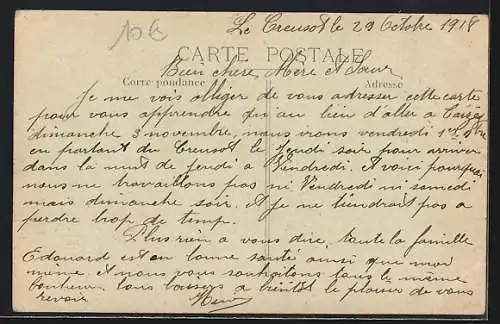 10€
Le Creusot le 29 Octobre 1918
CARTE POSTALE
Bien chere Mère et Sœur
Correspondance Adresse
Je me vois obliger de vous adresser cette carte
pour vous apprendre qu'au lieu d'aller a
dimanche 3 novembre, nous irons vendredi 1er 9bre
en partant du Creusot le Jeudi soir pour arriver
dans la nuit de jeudi a Vendredi. et voici pourquoi
nous ne travaillons pas ni Vendredi ni samedi
mais dimanche soir. et je ne tiendrait pas a
perdre trop de temp.
Plus rien a vous dire, toute la famille
Edouard est en bonne santé ainsi que moi
même. et nous vous souhaitons tous le même
bonheur. bons baisers a bientôt le plaisir de vous
revoir